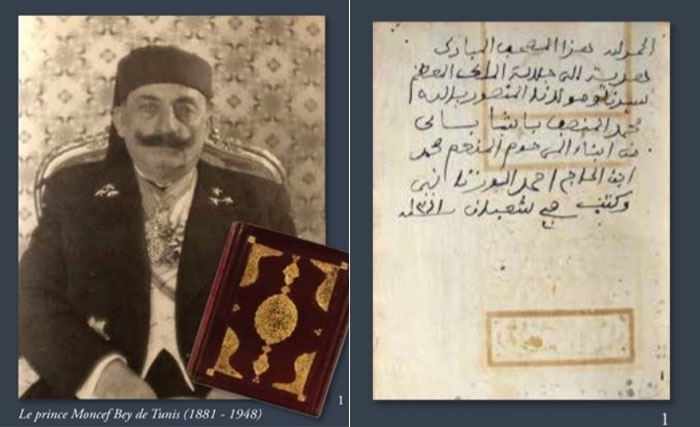 Le prince Moncef Bey de Tunis (1881 - 1948)
1
الحمد لله هذا المصحف المبارك
هدية الى جلالة الملك المعظم
سيدنا و مولانا المنصور بالله
محمد المنصف باشا باي
من ابناء المرحوم المنعم محمد
ابن الحاج احمد
وكتب في شعبان
1